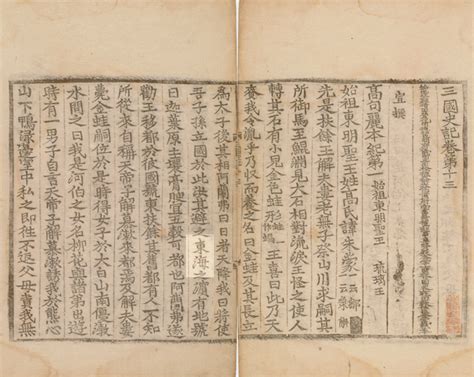 三國史記卷第十三
宣撰
高句麗本紀第一 始祖東明聖王 琉璃王
始祖東明聖王姓高氏諱朱蒙一云鄒 一云衆解
先是扶餘王解夫婁老無子祭山川求嗣其
所御馬至鯤淵見大石相對流淚王怪之使人
轉其石有小兒金色蛙形蛙一作蝸王喜曰此乃天
賚我令胤乎乃收而養之名曰金蛙及其長立
爲太子後其相阿蘭弗曰日者天降我曰將使
吾子孫立國於此汝其避之東海之濱有地號
曰迦葉原土壤膏腴宜五穀可都也阿蘭弗遂
勸王移都於彼國號東扶餘其舊都有人不知
所從來自稱天帝子解慕漱來都焉及解夫婁
薨金蛙嗣位於是時得女子於太白山南優渤
水問之曰我是河伯之女名柳花與諸弟出遊
時有一男子自言天帝子解慕漱誘我於熊心
山下鴨淥邊室中私之即往不返父母責我無